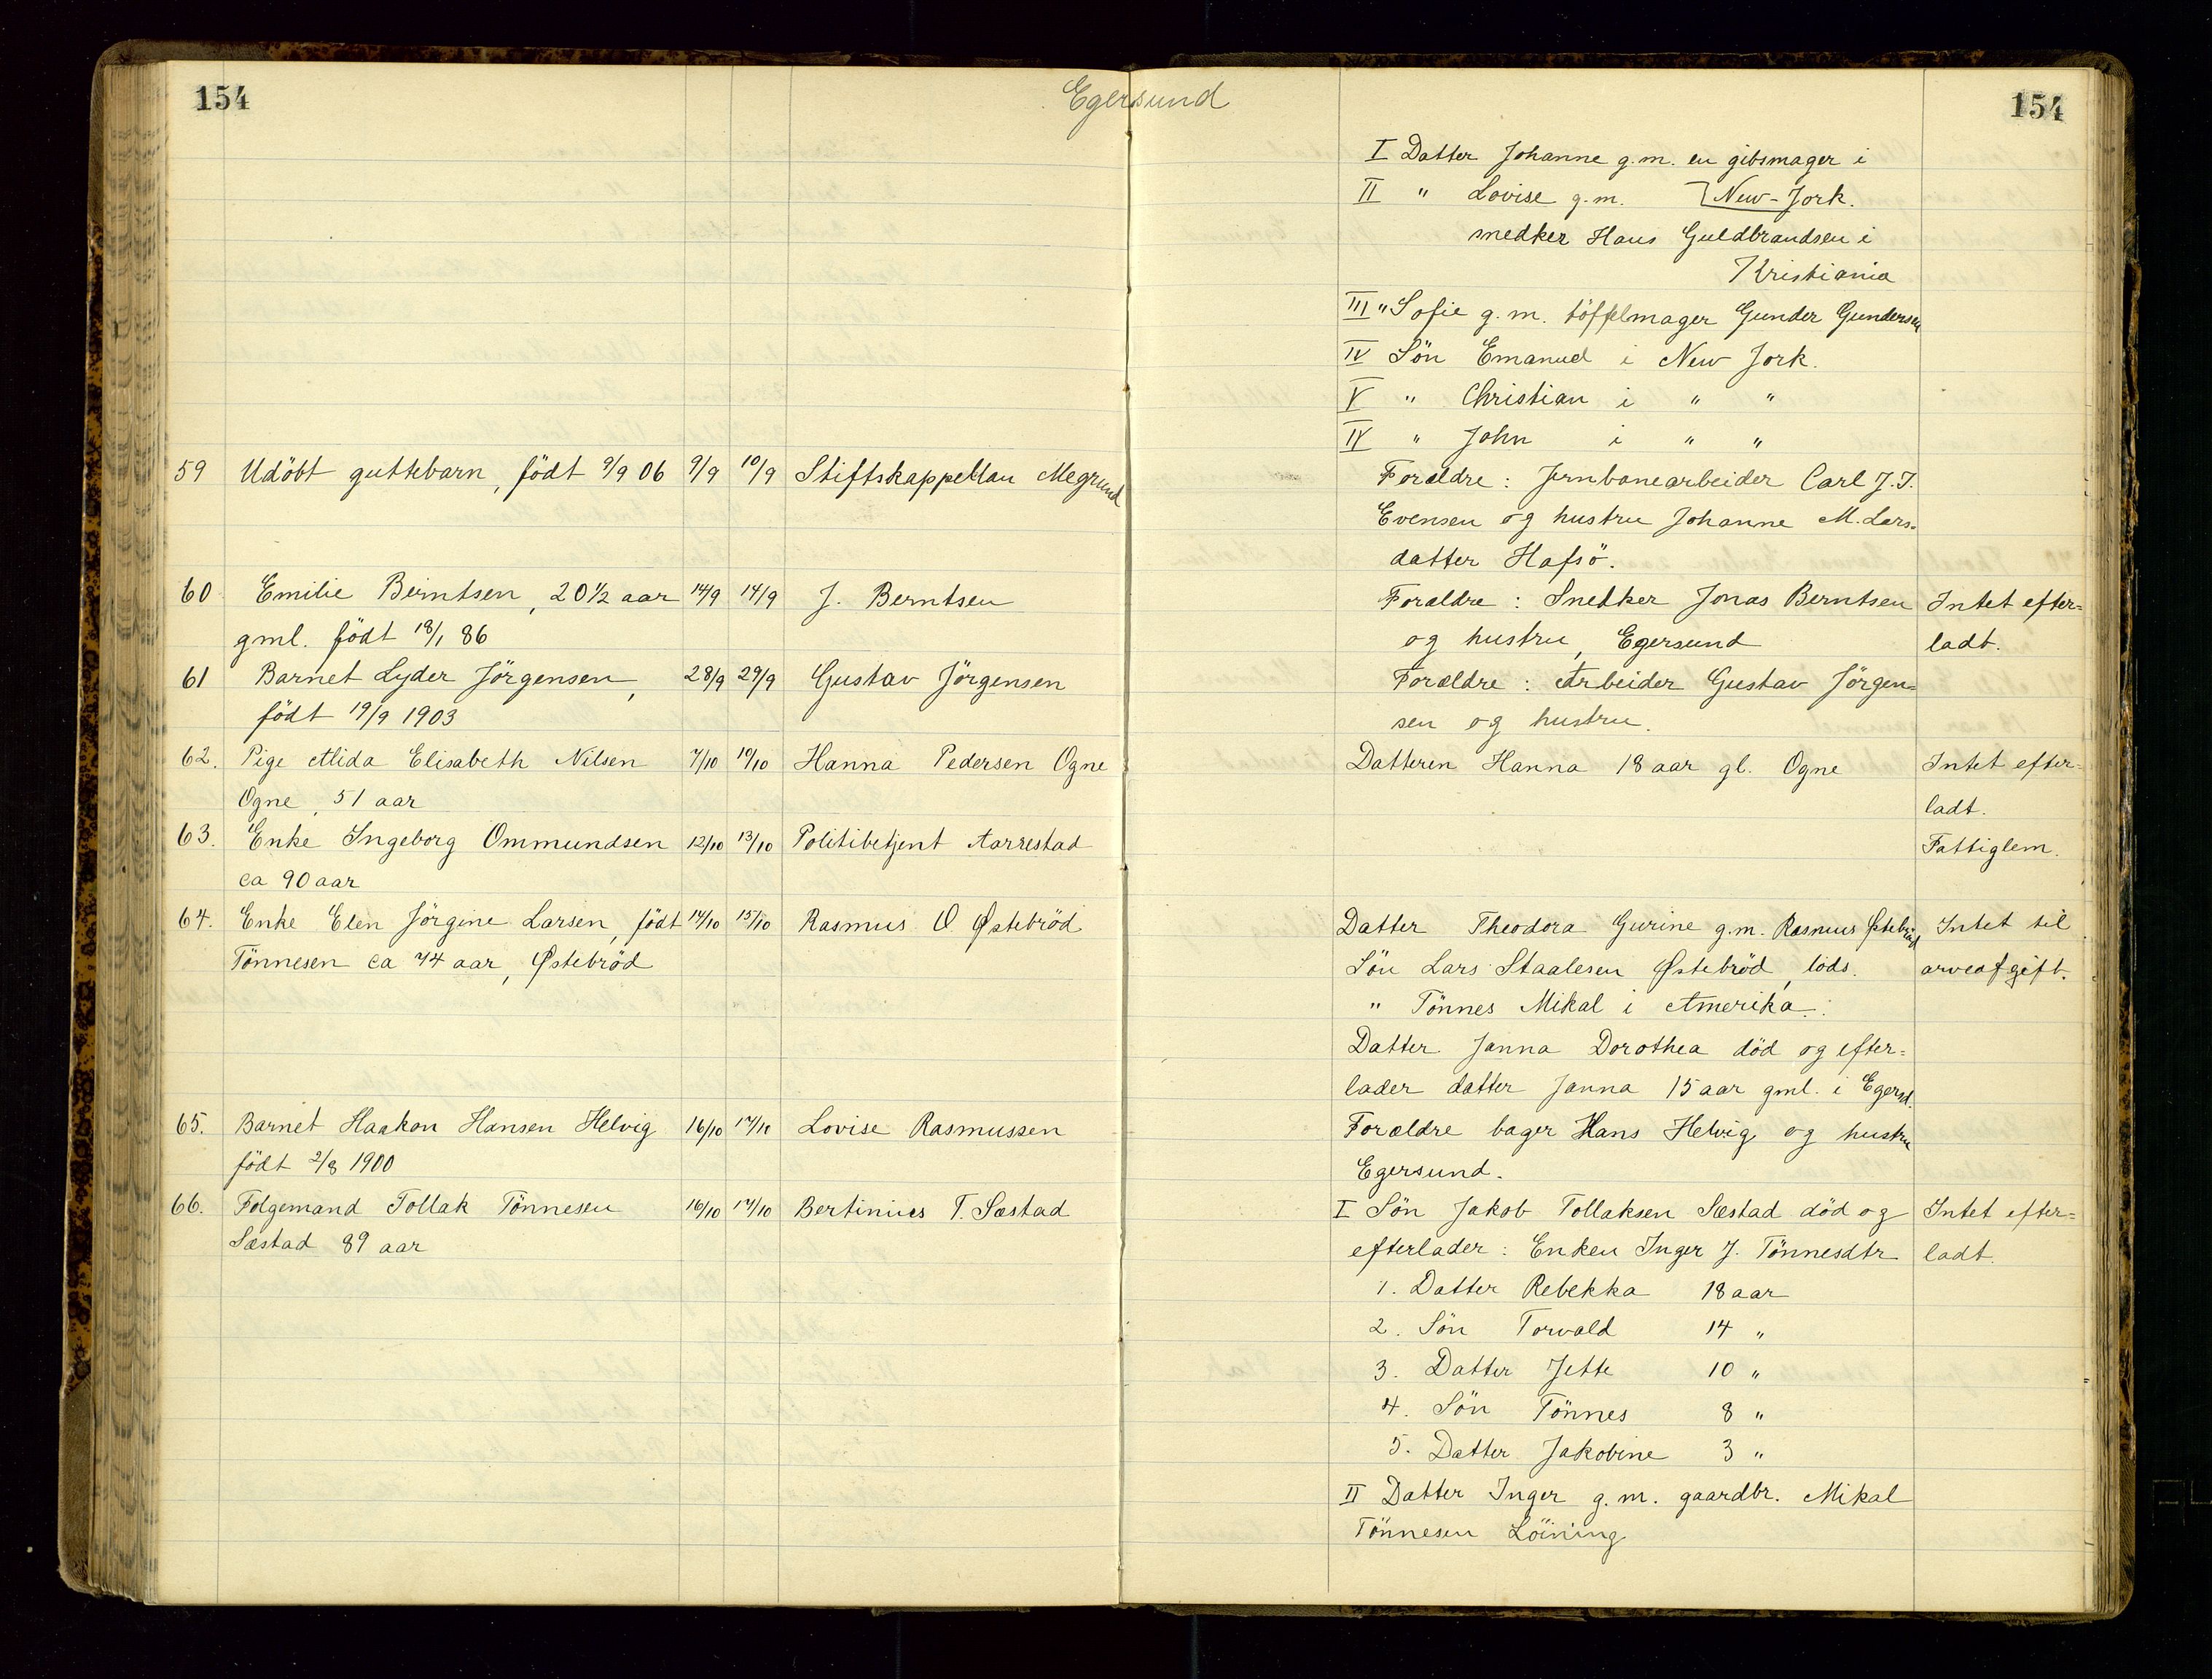 154
Egersund
154
I Datter Johanne g.m. en gibsmager i
II " Lovise g.m. New-Jork.
snedker Hans Guldbrandsen i
Kristiania
III " Sofie g.m. töffelmager Gunder Gundersen
IV Sön Emanuel i New Jork.
V " Christian i " "
IV " John i " "
59 Udöbt guttebarn, födt 9/9 06 9/9 10/9 Stiftskappellan Megrund Forældre: Jernbanearbeider Carl J. J.
Evensen og hustru Johanne M. Lars=
datter Hafsö.
60 Emilie Berntsen, 20 1/2 aar 14/9 14/9 J. Berntsen Forældre: Snedker Jonas Berntsen Intet efter=
gml. födt 18/1 86 og hustru, Egersund ladt.
61 Barnet Lyder Jörgensen, 28/9 29/9 Gustav Jörgensen Forældre: Arbeider Gustav Jörgen=
födt 19/9 1903 sen og hustru.
62. Pige Alida Elisabeth Nilsen 7/10 10/10 Hanna Pedersen Ogne Datteren Hanna 18 aar gl. Ogne Intet efter=
Ogne, 51 aar ladt.
63. Enke Ingeborg Ommundsen 12/10 13/10 Politibetjent Aarrestad Fattiglem.
ca 90 aar
64. Enke Elen Jörgine Larsen, födt 14/10 15/10 Rasmus O Østebröd Datter Theodora Gurine g.m. Rasmus Østebröd Intet til
Tönnesen ca 74 aar, Østebröd Sön Lars Staalesen Østebröd, lods. arveafgift.
" Tönnes Mikal i Amerika.
Datter Janna Dorothea död og efter=
lader datter Janna 15 aar gml. i Egersd.
65. Barnet Haakon Hansen Helvig 16/10 17/10 Lovise Rasmussen Forældre bager Hans Helvig og hustru
födt 2/8 1900 Egersund.
66. Folgemand Tollak Tönnesen 16/10 17/10 Bertinius T. Sæstad I Sön Jakob Tollaksen Sæstad död og Intet efter=
Sæstad 89 aar efterlader: Enken Inger J. Tönnesdtr ladt.
1. Datter Rebekka 18 aar
2. Sön Torvald 14 "
3. Datter Jette 10 "
4. Sön Tönnes 8 "
5. Datter Jakobine 3 "
II Datter Inger g.m. gaardbr. Mikal
Tönnesen Löining